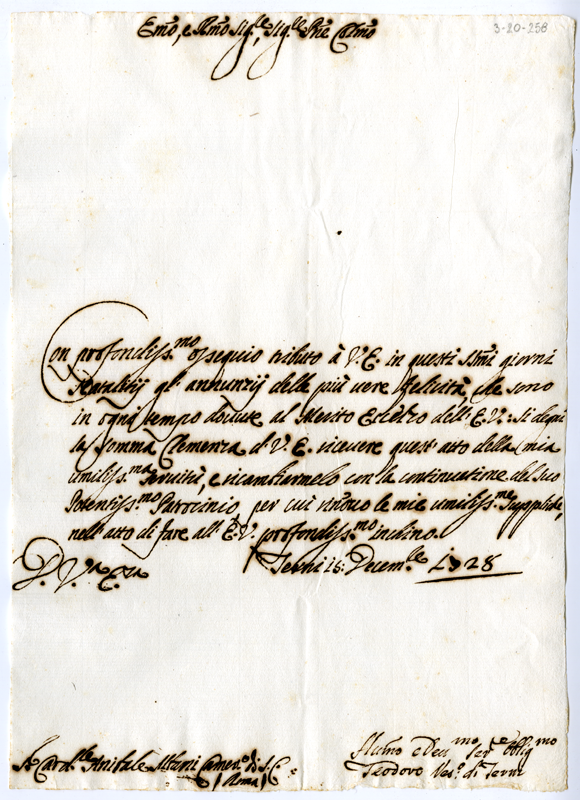 3-20-258
Emo, e Rmo Sig.re, Sig.re Pne Colmo
Con profondiss.mo ossequio tributo à V.E. in questi Stmi giorni
Natalitij gl'annunzij delle più uere felicità, che sono
in ogni tempo dovute al Merito Eccelso dell'E.V.: Si degni
la somma Clemenza d'V.E. riceuere quest'atto della mia
umiliss.ma seruitù, e ricambiarmelo con la continuazione del suo
Potentiss.mo Patrocinio, per cui rinouo le mie umiliss.me suppliche,
nell'atto di fare all'E.V. profondiss.mo inchino.
D. V.ra E.za Terni 18: Decem.bre 1728
Card.le Anibale Albani Camer.o di S.C.
(Roma)
Humo e Deu.mo ser.re obblig.mo
Teodoro Ves.o di Terni